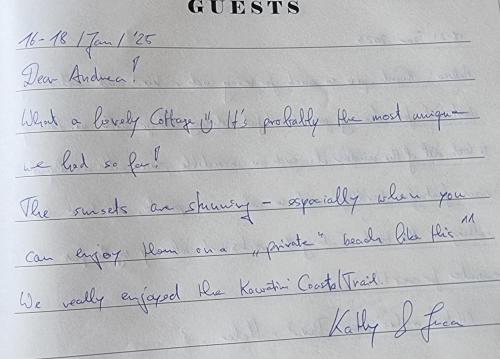 GUESTS
16-18/Jan/'25
Dear Andrea!
What a lovely Cottage☺ It's probably the most unique
we had so far!
The sunsets are stunning - especially when you
can enjoy them on a „private“ beach like this
We really enjoyed the Kawatiri Coastal Trail.
Kathy & Luca